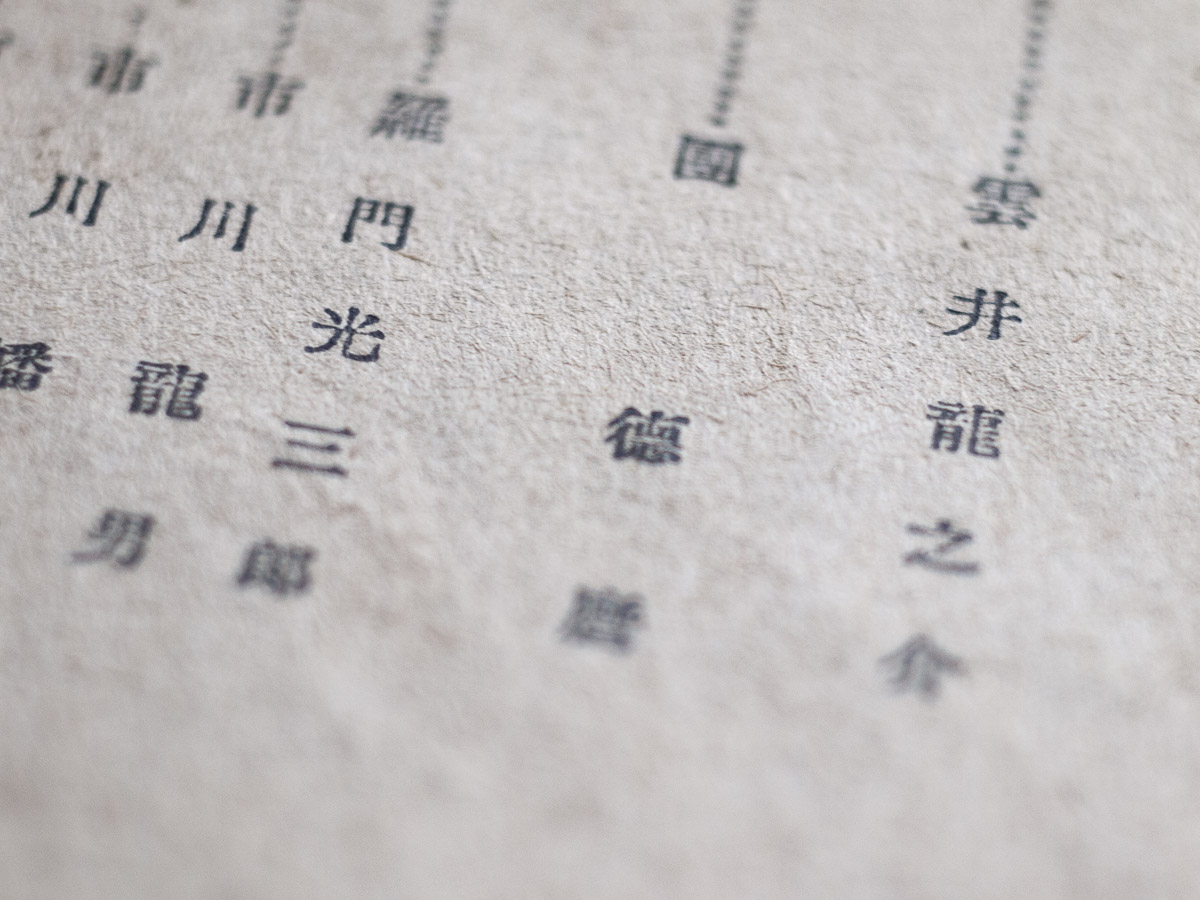 雲井龍之介
國德麿
羅門光三郎
市川龍男
市川